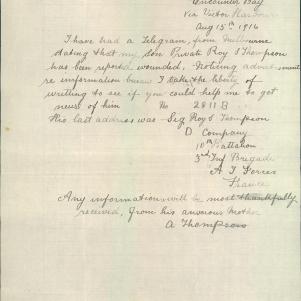 Encounter Bay
via Victor Harbour
Aug 15th 1916
I have had a Telegram, from Melbourne
stating that my son Private Roy S Thompson
has been reported wounded. Noticing advertisement
re information bureau I take the liberty of
writting to see if you could help me to get
news of him No 2811 B
His last address was - Sig Roy S Thompson
D Company
10th Battalion
3rd Inf Brigade
A I Forces
France
Any information will be most thankfully
received, from his anxious Mother
A Thompson